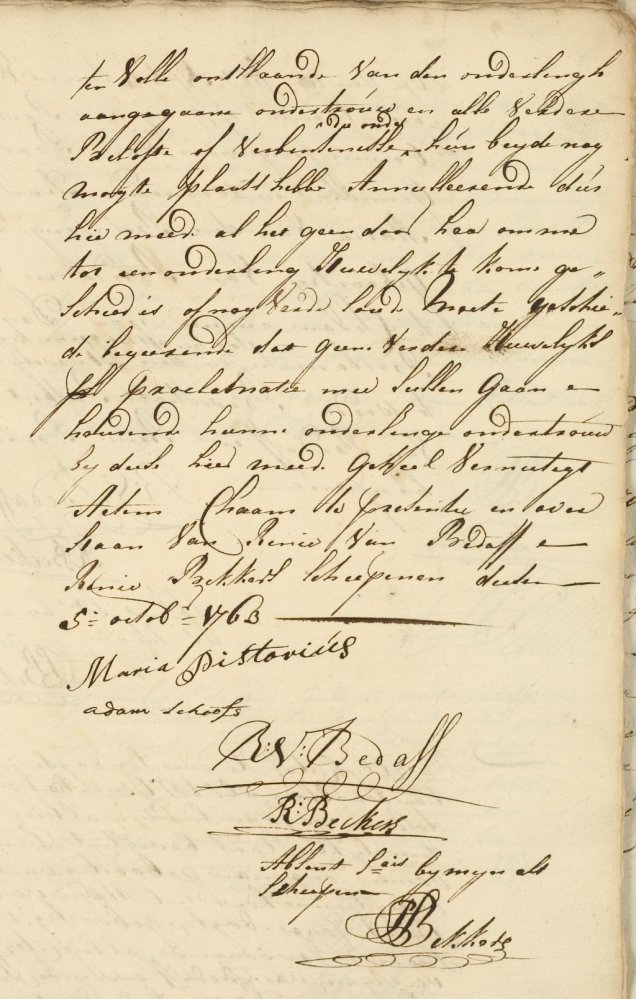 ten Volle ontslaande Van den onderlengh
aangegaane ondertrouw en alle Verdere
die onder
Belofte of Verbentenisse hun beyde nog
mogte plaats hebbe Annulleerende dus
hier meede al het geen door haar omme
tot een onderling Huwelyk te kome ge„
Schied is of nog Verder soude Moete geschie„
de begeerende dat geene Verdere Huwelyks
proclamatie mee Sullen Gaan en
houdende hunne onderlenge ondertrouw
by deese hier meede Geheel Vernietigt
Actum Chaam te presentie en over
staan Van Renier Van Bedaff en
Renier Bekkers Scheepenen deesen
5: octob: 1763
Maria Pistorius
adam schoofs
R: V: Bedaff
R: Beckers
Absent S:ais by myn als
Scheepen
Bekkers